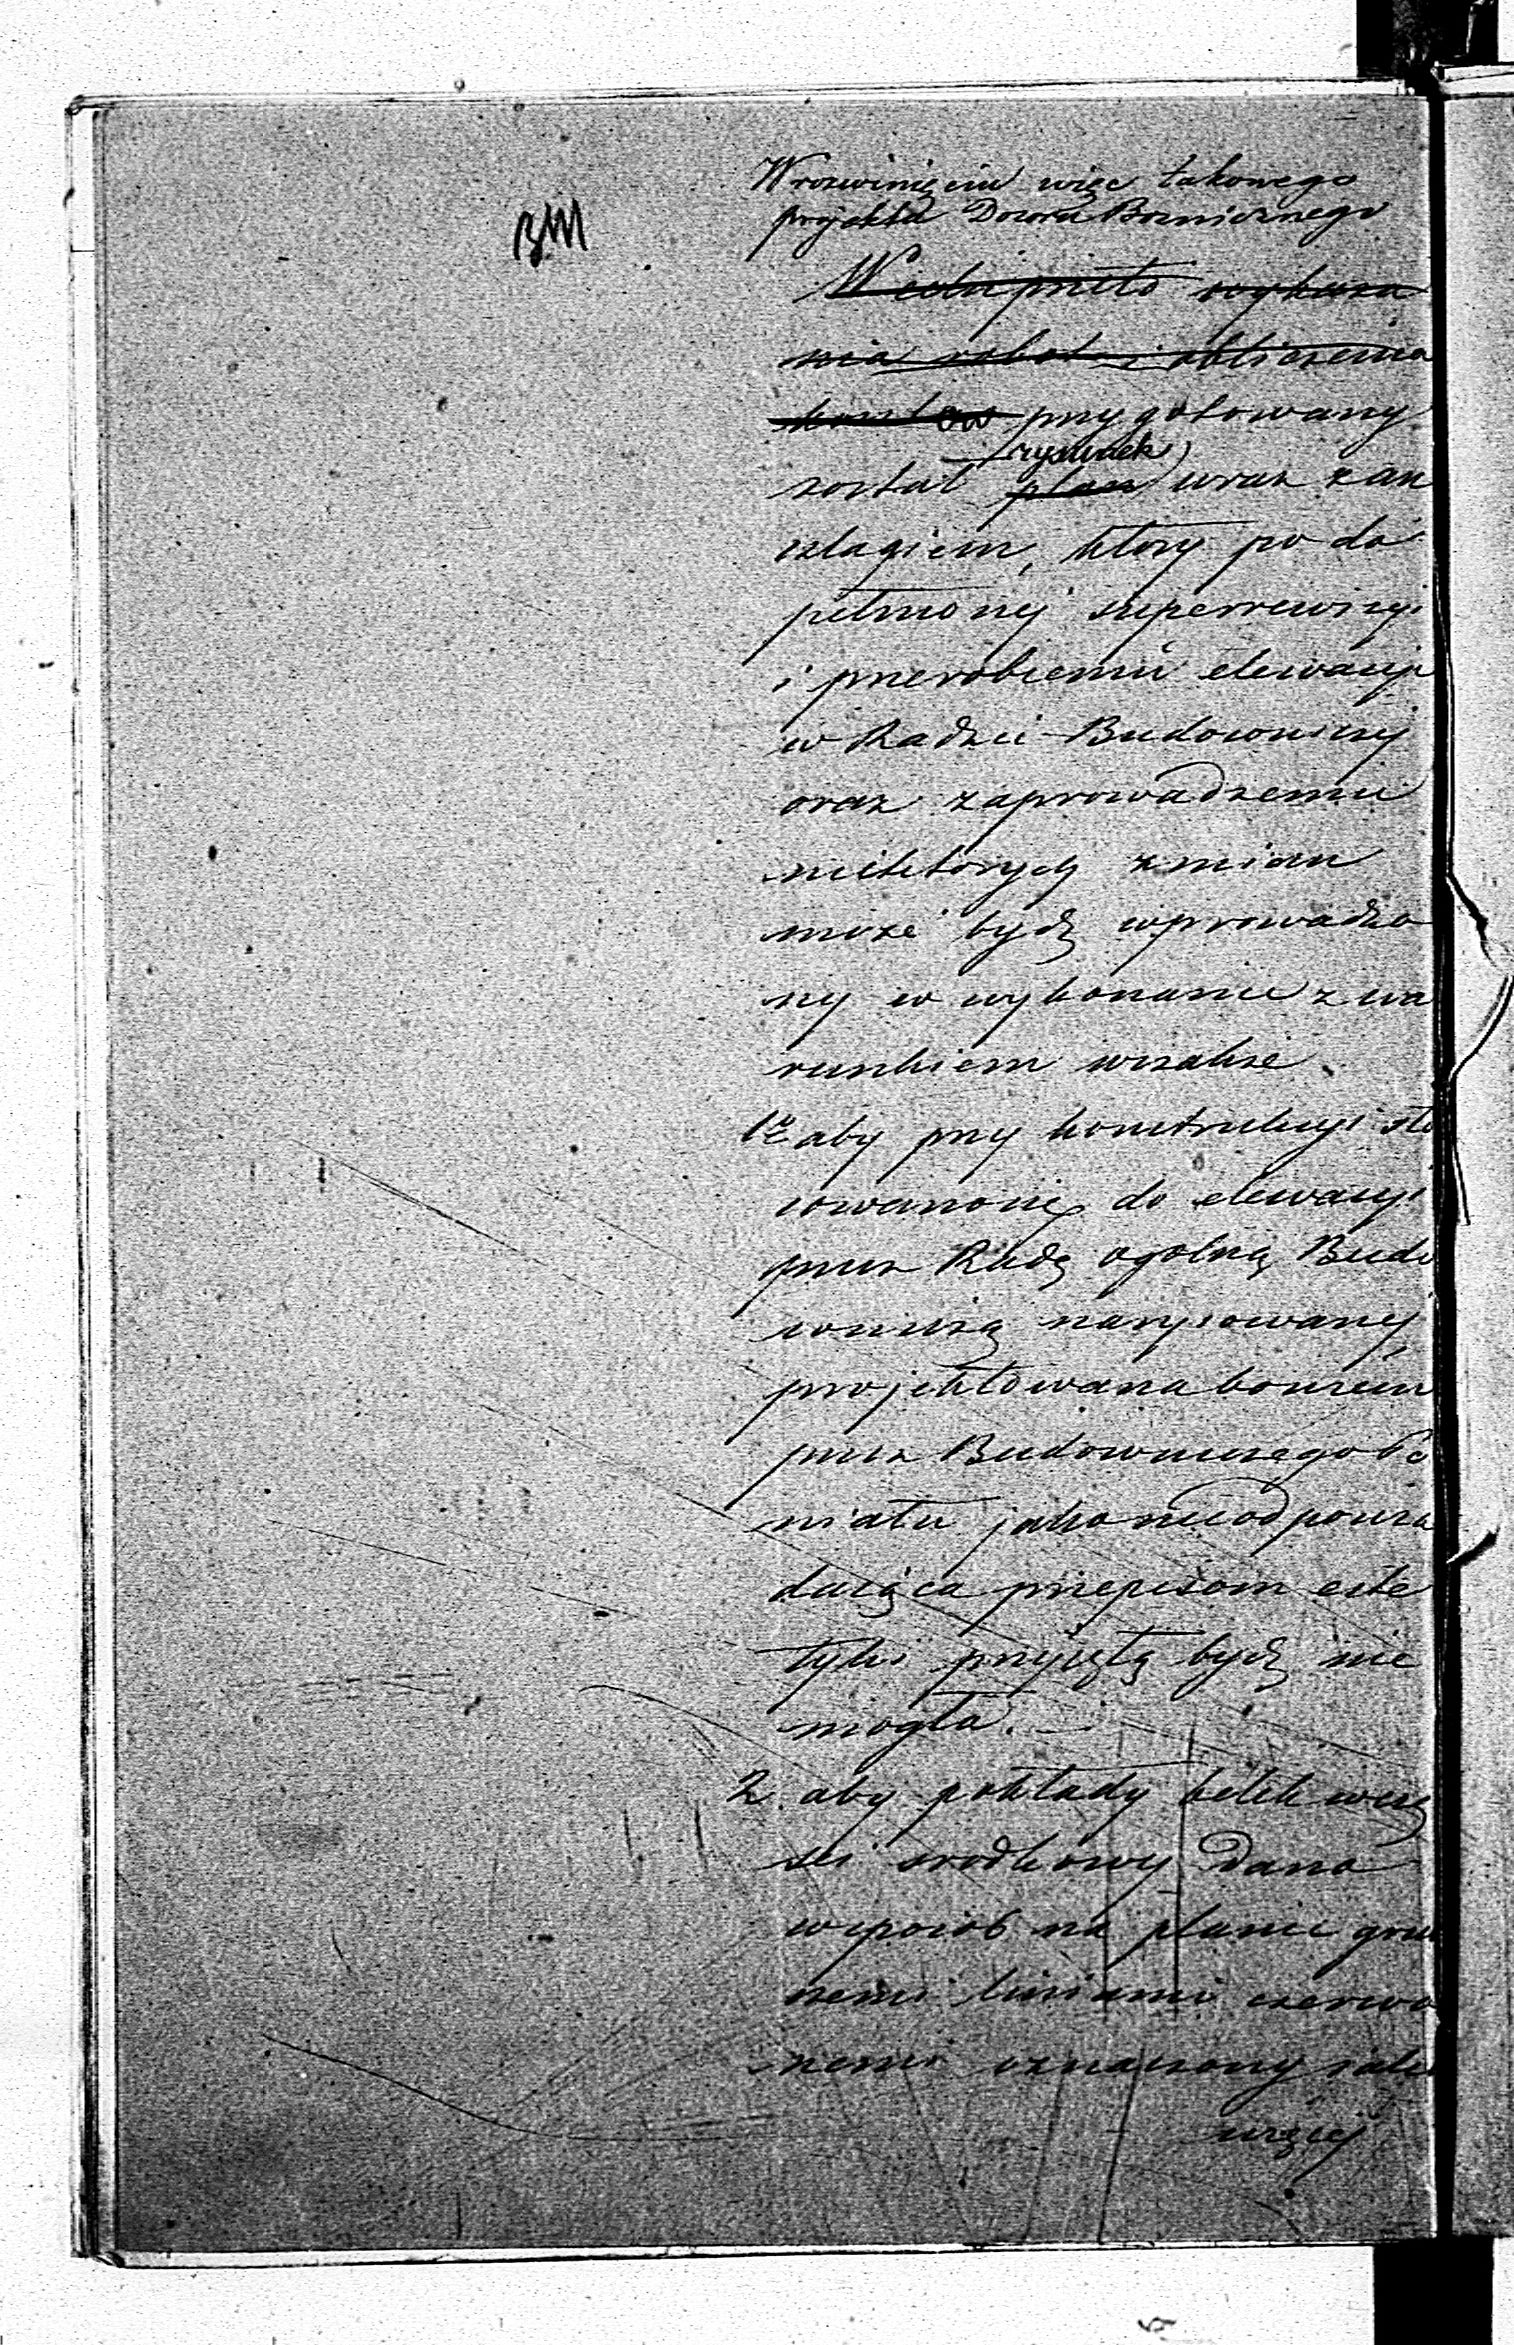 W rozwinięciu więc takowego
projektu Dozoru Bozniczego
BM
Wedłu przeto wykaza
nia robot i obliczenia
kosztow przygotowany
rysunek
został plan wraz z an
szlagiem, ktory po do
pełnionej superrewizyi
i przerobieniu elewacyi
w Radzie Budowniczej
oraz zaprowadzeniu
niektorych zmian
może bydź wprowadzo
ny w wykonanie z wa
runkiem wszakże
1o aby przy konstrukcyi sto
sowano się do elewacyi
przez Radę ogolną Budo
wniczą narysowanej,
projektowana bowiem
przez Budowniczego Po
wiatu jako nieodpowia
dająca przepisom este
tyki przyjętą bydź nie
mogła. —
2. aby pokłady belek w czę
ści srodkowej dano
w sposob na planie grub
szemi liniami czerwo
nemi oznaczony
więcej